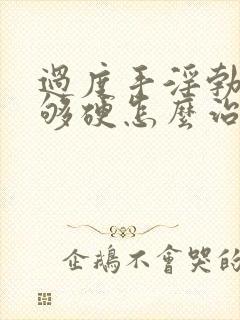 過度手淫勃
够硬怎麼治
企鵝不會哭的